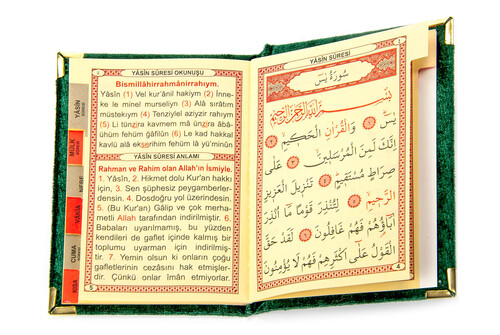 YÂSİN SÛRESİ OKUNUŞU
Bismillâhirrahmânirrahıym.
Yâsîn (1) Vel kur'ânil hakiym (2) İnne-
ke le minel murseliyn (3) Alâ sırâtim
müstekıym (4) Tenziylel aziyzir rahıym
(5) Li tünzira kavmem mâ ünzira âbâ-
ühüm fehüm gâfilûn (6) Le kad hakkal
kavlü alâ ekserihim fehüm lâ yu'minûn
YÂSİN SÛRESİ ANLAMI
Rahman ve Rahim olan Allah'ın İsmiyle.
1. Yâsîn, 2. Hikmet dolu Kur'an hakkı
için, 3. Sen şüphesiz peygamberler-
densin. 4. Dosdoğru yol üzerindesin.
5. (Bu Kur'an) Gâlip ve çok merha-
metli Allah tarafından indirilmiştir. 6.
Babaları uyarılmamış, bu yüzden
kendileri de gaflet içinde kalmış bir
toplumu uyarman için indirilmiş-
tir. 7. Yemin olsun ki onların çoğu
gafletlerinin cezasını hak etmişler-
dir. Çünkü onlar İman etmiyorlar.
5
YÂSİN
MÜLK
VAKIA
CUMA
YÂSİN SÛRESİ
سُورَةُ يٰسٓ
بِسْمِ اللّٰهِ الرَّحْمٰنِ الرَّحِيمِ
يٰسٓ ﴿١﴾ وَالْقُرْاٰنِ الْحَكِيمِ ﴿٢﴾
اِنَّكَ لَمِنَ الْمُرْسَلِينَ ﴿٣﴾ عَلٰى
صِرَاطٍ مُسْتَقِيمٍ ﴿٤﴾ تَنْزِيلَ الْعَزِيزِ
الرَّحِيمِ ﴿٥﴾ لِتُنْذِرَ قَوْمًا مَٓا اُنْذِرَ
اٰبَٓاؤُهُمْ فَهُمْ غَافِلُونَ ﴿٦﴾ لَقَدْ حَقَّ
الْقَوْلُ عَلٰٓى اَكْثَرِهِمْ فَهُمْ لَا يُؤْمِنُونَ
4